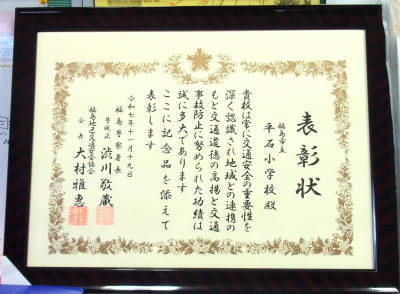 表彰状
福島市立
平石小学校殿
貴校は常に交通安全の重要性を
深く認識され地域との連携の
もと交通道徳の高揚と交通
事故防止に努められた功績は
誠に多大であります
ここに記念品を添えて
表彰します
令和七年十一月十九日
福島警察署長
警視正 渋川敬蔵
福島地区交通安全協会
会長 大村雅惠